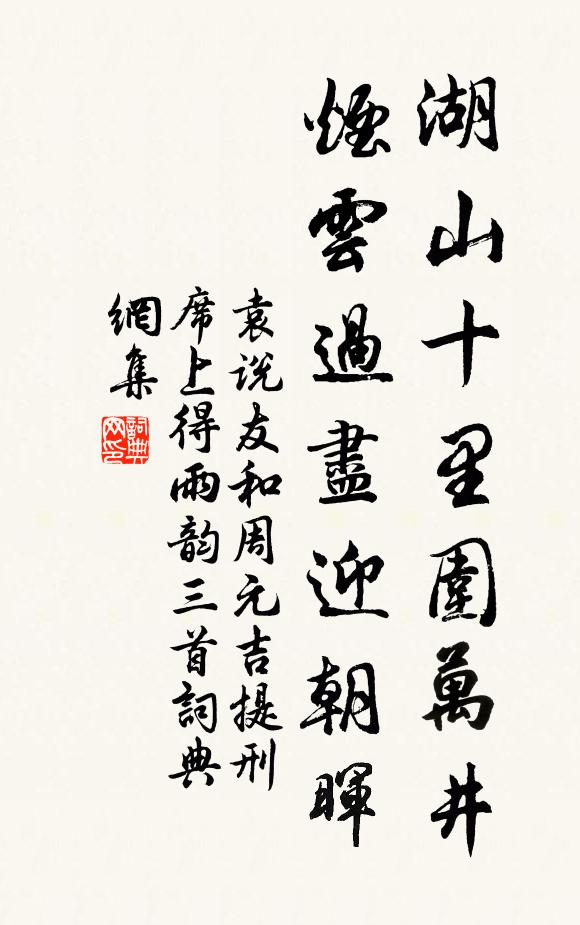 湖山十里圍萬井
煙雲過盡迎朝暉
袁說友和周元吉提刑
席上得雨韵三首詞典
網集
詞典
网印